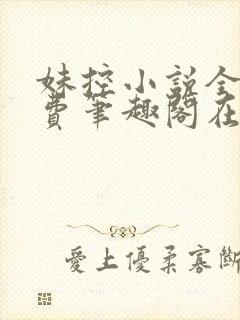 妹控小説全
費筆趣閣在
愛上優柔寡斷